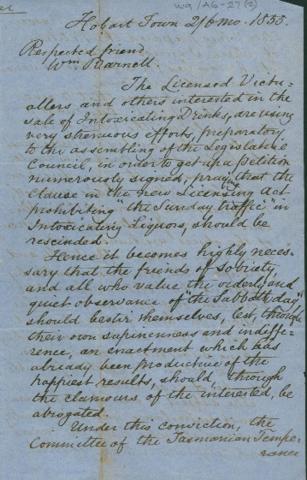 W9/A6-27(2)
Hobart Town 2/6 mo. 1855.
Respected friend
Wm Pearnell.
The Licensed Victu-
allers and others interested in the
sale of Intoxicating Drinks, are using
very strenuous efforts, preparatory
to the assembling of the Legislative
Council, in order to get up a Petition
numerously signed, pray.g that the
Clause in the new Licensing Act
prohibiting "the Sunday traffic" in
Intoxicating Liquors, should be
rescinded.
Hence it becomes highly neces-
sary that the friends of Sobriety,
and all who value the orderly and
quiet observance of "the Sabbath day"
should bestir themselves, lest, through
their own supineness and indiffe-
rence, an enactment which has
already been productive of the
happiest results, should through
the clamours of the interested, be
abrogated.
Under this conviction, the
Committee of the Tasmanian Tempe-
rance